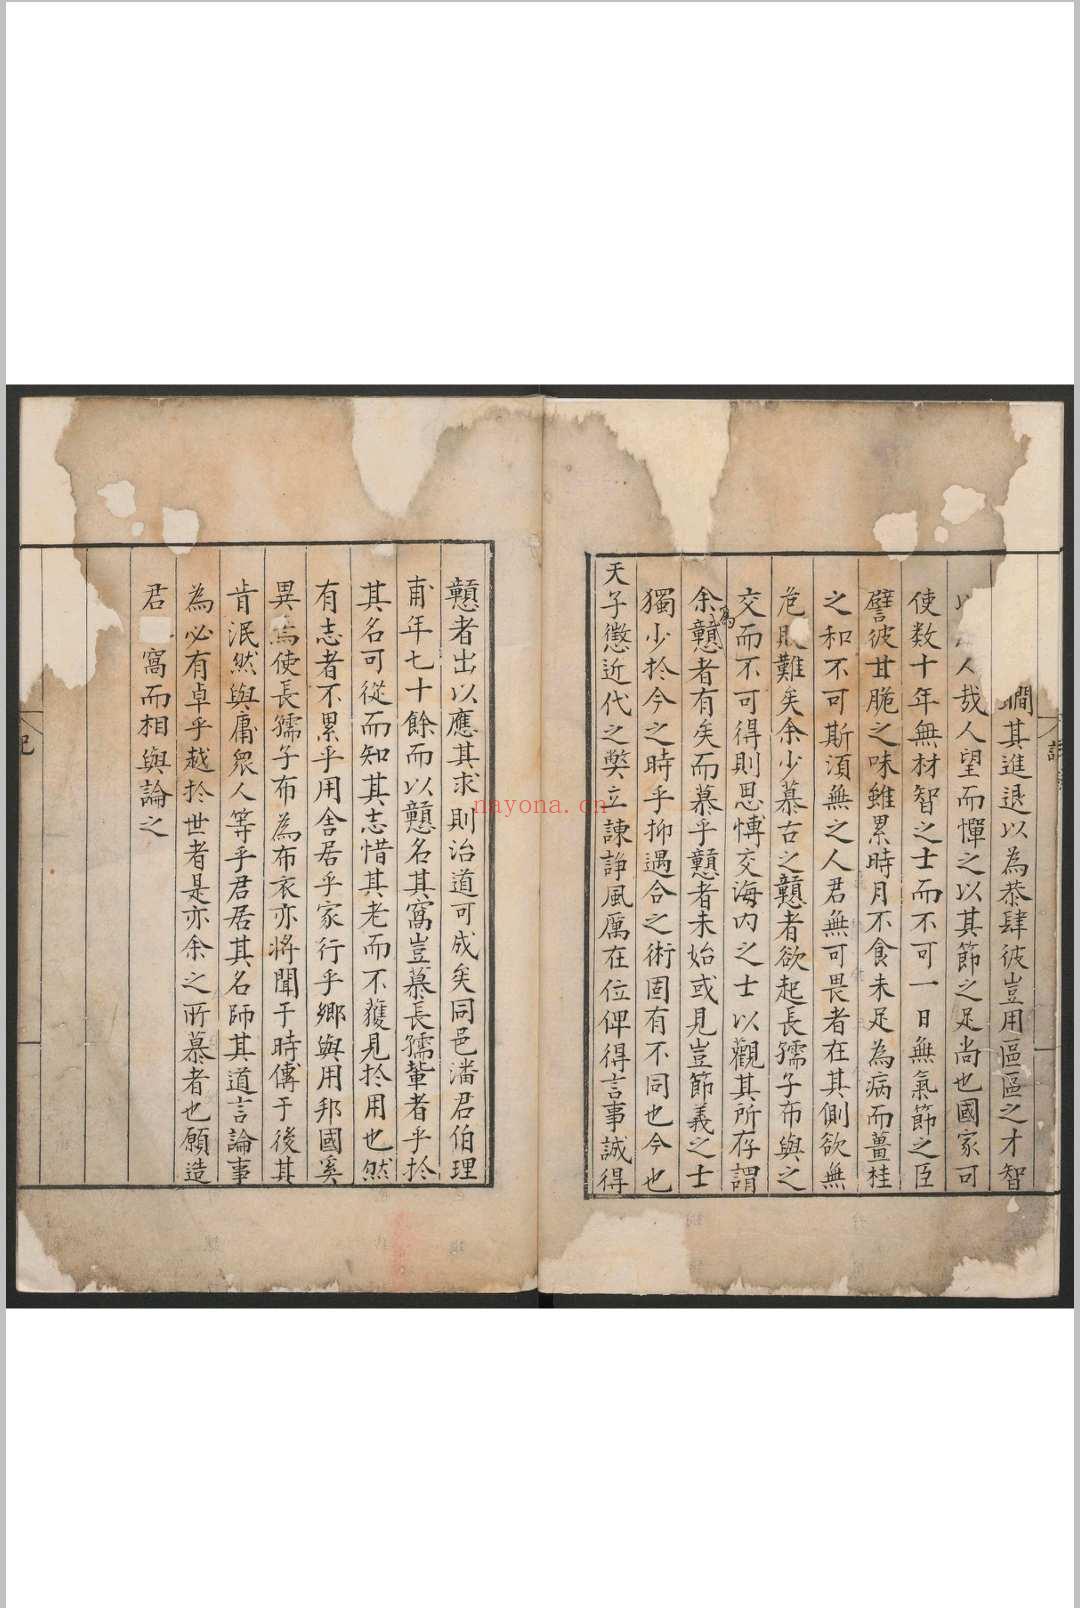 憪其進退以為恭肆彼豈用區區之才智
人哉人望而憚之以其節之足尚也國家可
使数十年無材智之士而不可一日無氣節之臣
譬彼甘脆之味雖累時月不食未足為病而薑桂
之和不可斯湏無之人君無可畏者在其側欲無
危難矣余少慕古之戇者欲起長孺子布與之
交而不可得則思博交海内之士以觀其所存謂
余戇者有矣而慕乎戇者未始或見豈節義之士
為
獨少扵今之時乎抑遇合之術固有不同也今也
天子懲近代之弊立諫諍風厲在位俾得言事誠得
戇者出以應其求則治道可成矣同邑潘君伯理
甫年七十餘而以戇名其窩豈慕長孺輩者乎扵
其名可從而知其志惜其老而不獲見扵用也然
有志者不累乎用舍居乎家行乎鄉與用邦國奚
異焉使長孺子布為布衣亦將聞于時傳于後其
肯泯然與庸衆人等乎君居其名師其道言論事
為必有卓乎越扵世者是亦余之所慕者也願造
君窩而相與論之
記
nayona.cn